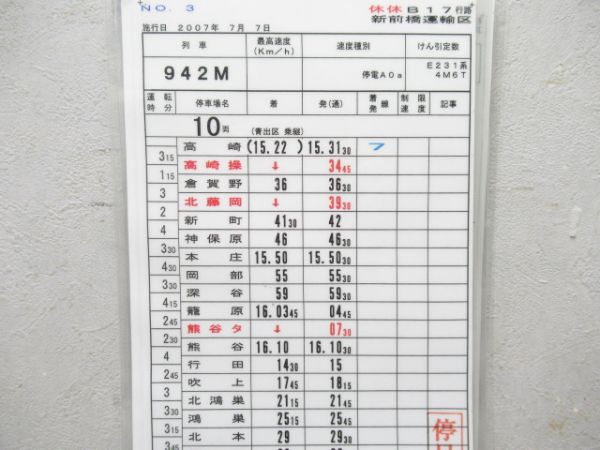 NO. 3
休休B17行路
新前橋運輸区
施行日 2007年 7月 7日
列車 最高速度(Km/h) 速度種別 けん引定数
942M 停電A0a E231系 4M6T
運転時分 停車場名 着 発(通) 着発線 制限速度 記事
10両 (青出区 乗継)
高崎 (15.22 ) 15.31 30 7
3 15
高崎操 ↓ 34 45
1 15
倉賀野 36 36 30
3
北藤岡 ↓ 39 30
2
新町 41 30 42
4
神保原 46 46 30
3 30
本庄 15.50 15.50 30
4 30
岡部 55 55 30
3 30
深谷 59 59 30
4 15
籠原 16.03 45 04 45
2 45
熊谷タ ↓ 07 30
2 30
熊谷 16.10 16.10 30
4
行田 14 30 15
2 45
吹上 17 45 18 15
3
北鴻巣 21 15 21 45
3 30
鴻巣 25 15 25 45
3 15
北本 29 29 30
3 45
停